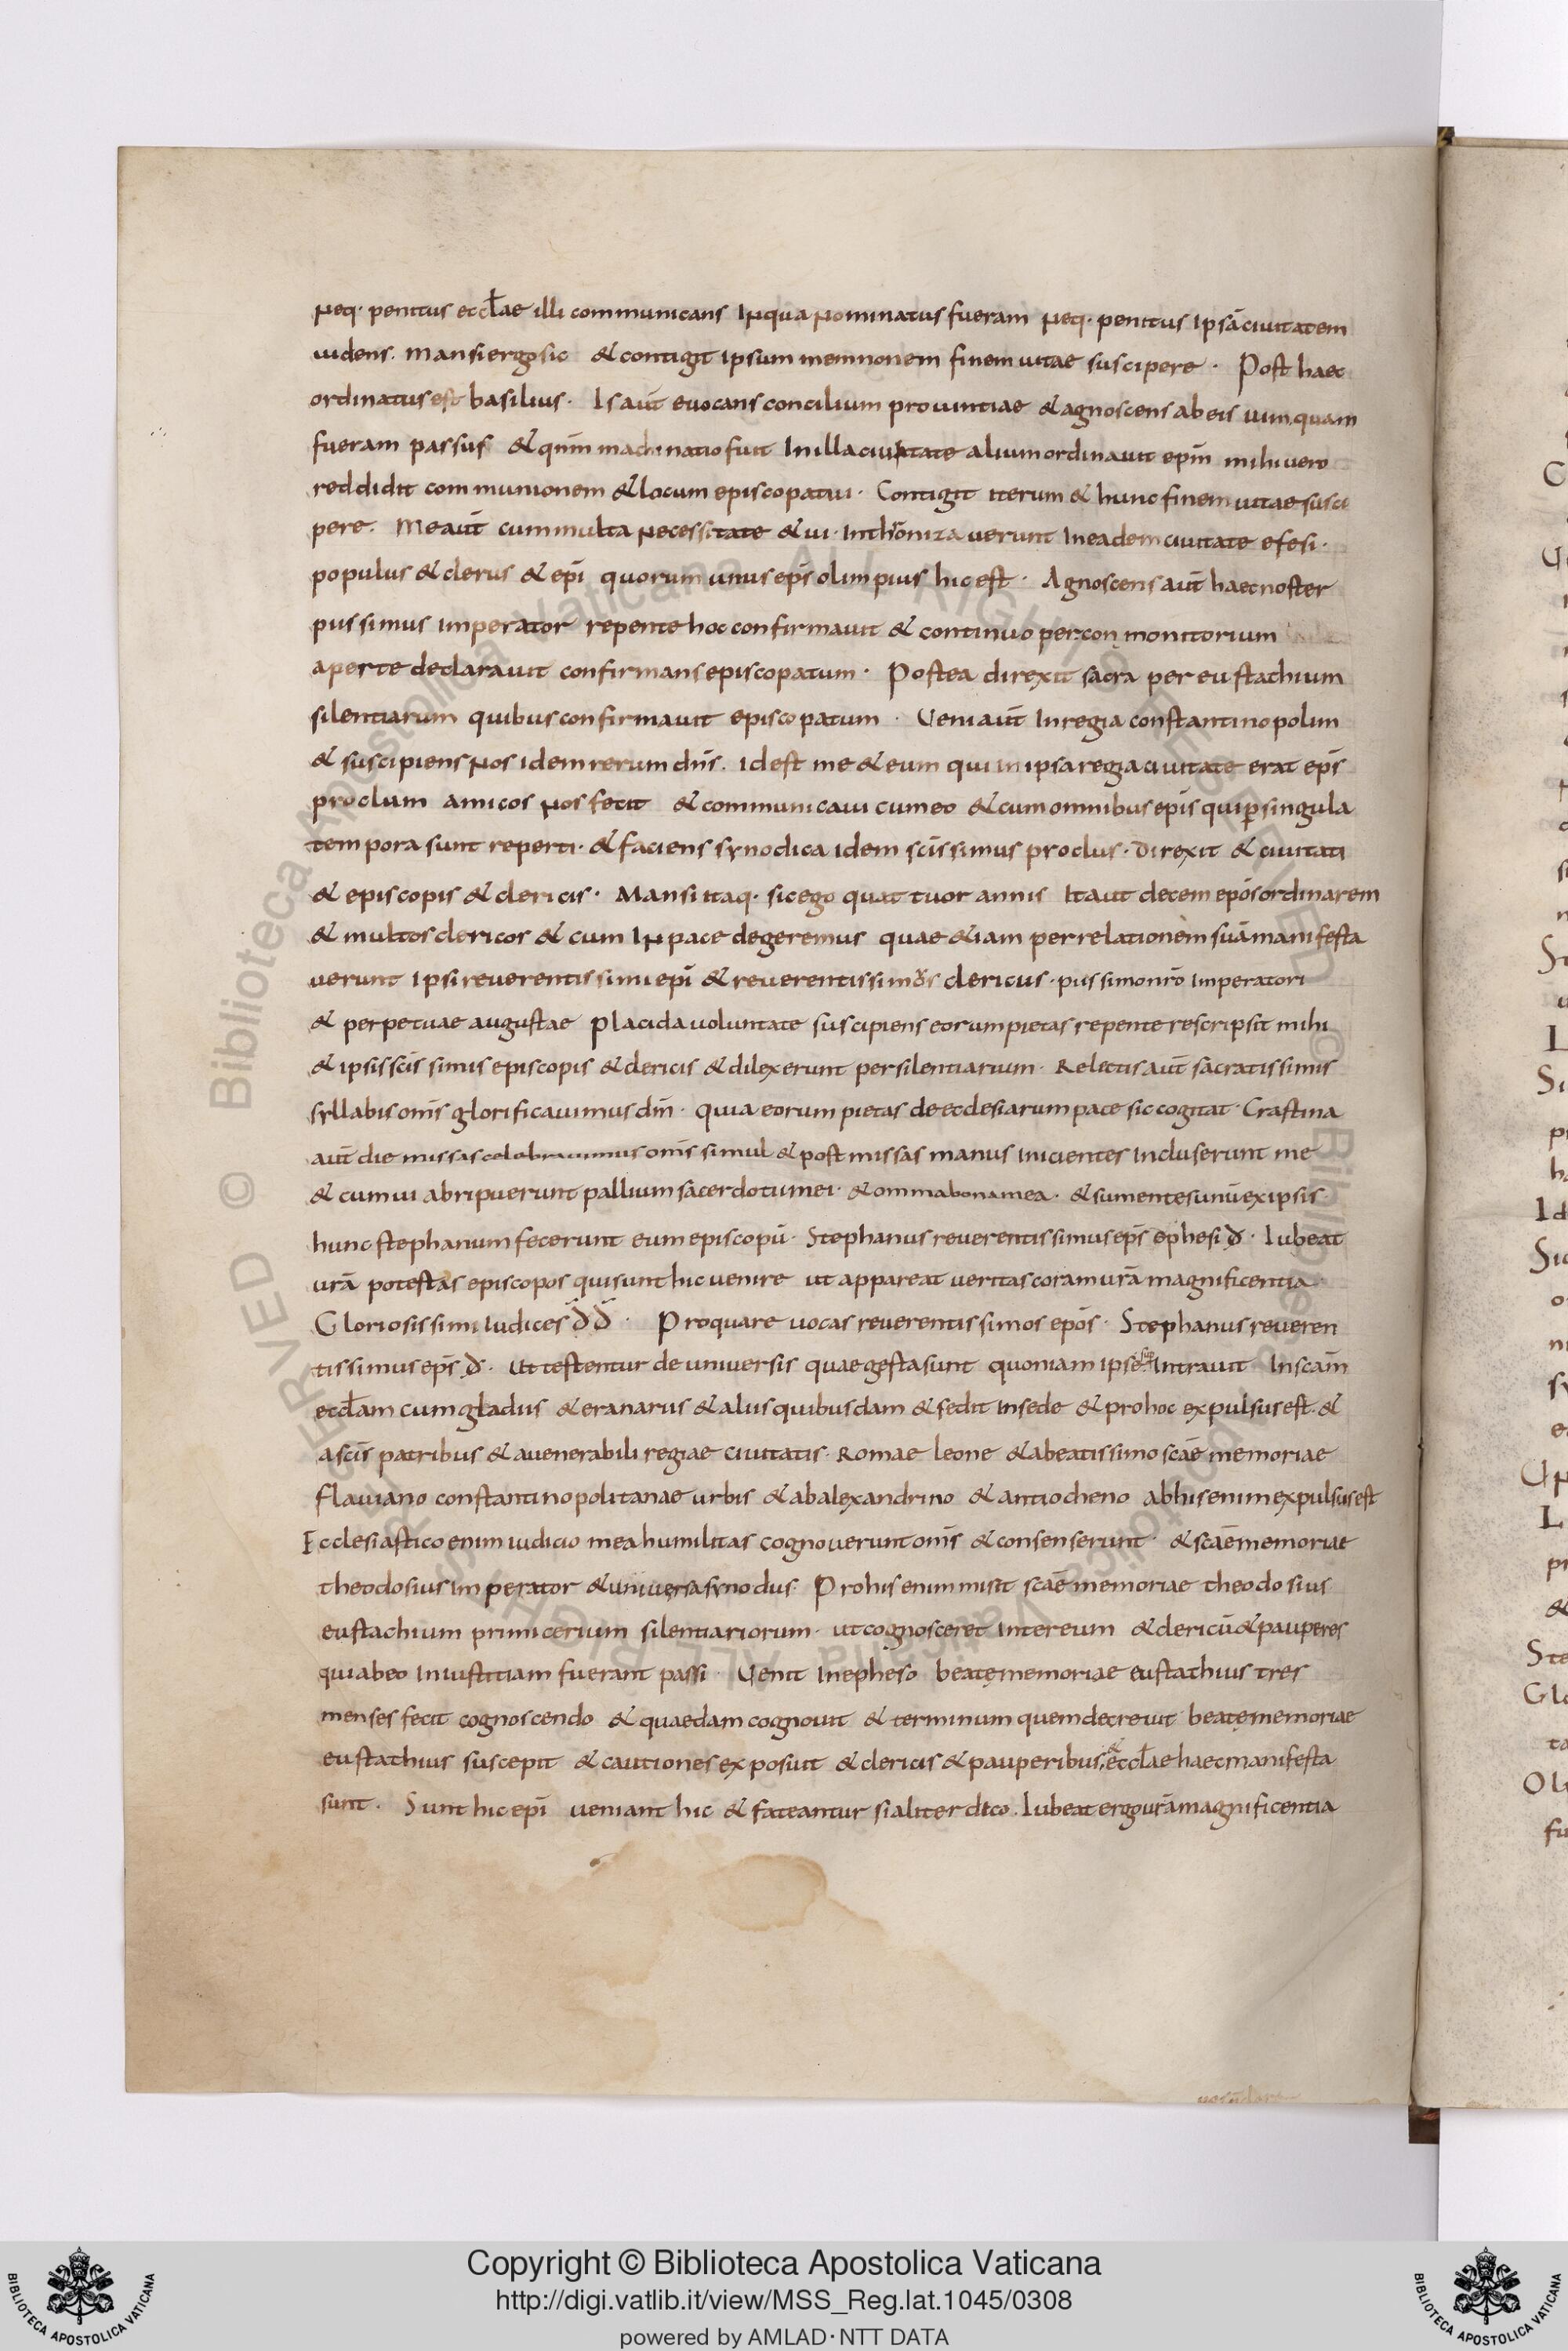 Neq· penitus eccƚae illi communicans INqua Nominatus fueram Neq· penitus Ipsā ciuitatem
uidens. Mansi ergo sic & contigit ipsum memnonem finem uitae suscipere · Post haec
ordinatus est basilius · Is aūt euocans concilium prouintiae & agnoscens ab eis uim quam
fueram passus & qm̄ machinatio fuit In illa ciuitate alium ordinauit ep̄m mihi uero
reddidit communionem & locum episcopatui · Contigit iterum & hunc finem uitae susci
pere. Me aūt cum multa Necessitate & ui · Inthronizauerunt In eadem ciuitate efesi ·
populus & clerus & ep̄i quorum unus ep̄s olimpius hic est · Agnoscens aūt haec noster
piissimus imperator repente hoc confirmauit & continuo per con monitorium
aperte declarauit confirmans episcopatum · Postea direxit sacra per eustathium
silentiarum quibus confirmauit episcopatum · Ueni aūt In regia constantinopolim
& suscipiens Nos idem rerum dn̄s. id est me & eum qui in ipsa regia ciuitate erat ep̄s
proclum amicos Nos fecit & communicaui cum eo & cum omnibus ep̄is qui ꝑ singula
tempora sunt reperti · & faciens synodica idem sc̄issimus proclus · direxit & ciuitati
& episcopis & clericis · Mansi itaq· sic ego quattuor annis Ita ut decem ep̄os ordinarem
& multos clericos & cum IN pace degeremus quae &iam per relationem suā manifesta
uerunt Ipsi reuerentissimi ep̄i & reuerentissimos clericus · piissimo nr̄o Imperatori
& perpetuae augustae placida uoluntate suscipiens eorum pietas repente rescripsit mihi
& ipsis sc̄issimis episcopis & clericis & dilexerunt per silentiarium · Relectis aūt sacratissimis
syllabis om̄s glorificauimus dm̄ · quia eorum pietas de ecclesiarum pace sic cogitat · Crastina
aūt die missas celebrauimus om̄s simul & post missas manus Inicientes Incluserunt me
& cum ui abripuerunt pallium sacerdotii mei · & omnia bona mea · & sumentes unū ex ipsis
hunc stephanum fecerunt eum episcopū · Stephanus reuerentissimus ep̄s ephesi đ · Iubeat
ur̄a potestas episcopos qui sunt hic uenire ut appareat ueritas coram ur̄a magnificentia
Gloriosissimi Iudices đđ · Pro quare uocas reuerentissimos ep̄os · Stephanus reueren
tissimus ep̄s đ · Ut testentur de uniuersis quae gesta sunt quoniam ipse Intrauit In sc̄am
eccƚam cum gladiis & eranariis & aliis quibusdam & sedit in sede & pro hoc expulsus est · &
a sc̄is patribus & a uenerabili regiae ciuitatis · Romae leone & a beatissimo sc̄ae memoriae
flauiano constantinopolitanae urbis & ab alexandrino & antiocheno ab his enim expulsus est
Ecclesiastico enim iudicio mea humilitas cognouerunt om̄s & consenserunt · & sc̄ae memoriae
theodosius Imperator & uniuersa synodus · Pro his enim misit sc̄ae memoriae theodosius
eustachium primicerium silentiariorum · ut cognosceret Inter eum & clericū & pauperes
qui ab eo Iniustitiam fuerant passi · Uenit In epheso beatę memoriae eustathius tres
menses fecit cognoscendo & quaedam cognouit & terminum quem decreuit beatę memoriae
eustathius suscepit & cautiones exposuit & clericis & pauperibus & eccƚae haec manifesta
sunt. Sunt hic ep̄i ueniant hic & fateantur si aliter dico. Iubeat ergo ur̄a magnificentia
Copyright © Biblioteca Apostolica Vaticana
http://digi.vatlib.it/view/MSS_Reg.lat.1045/0308
powered by AMLAD·NTT DATA